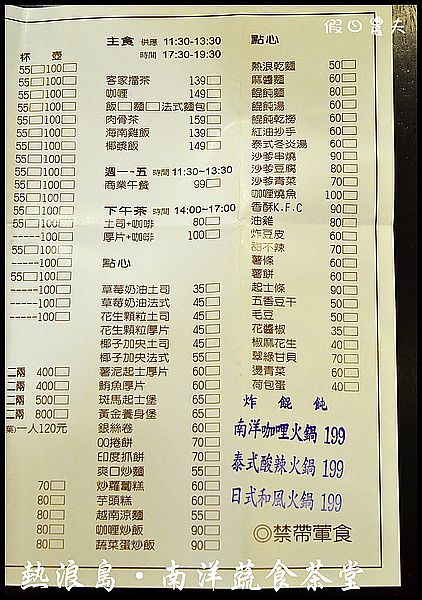 假日農夫
杯 壺
55 100
55 100
55 100
55 100
55 100
55 100
55 100
55 100
55 100
55 100
55 100
55 100
55 100
------100
55 100
------100
55 100
------100
------100
二兩 400
二兩 400
二兩 500
二兩 800
葉)一人120元
70
80
80
80
80
主食 供應 11:30-13:30
時間 17:30-19:30
客家擂茶 139
咖哩 149
飯 麵 法式麵包
肉骨茶 159
海南雞飯 139
椰漿飯 149
週一~五 時間 11:30~13:30
商業午餐 99
下午茶 時間 14:00~17:00
土司+咖啡 80
厚片+咖啡 100
點心
草莓奶油土司 35
草莓奶油法式 45
花生顆粒土司 45
花生顆粒厚片 45
椰子加央土司 45
椰子加央法式 55
薯泥起士厚片 60
鮪魚厚片 60
斑馬起士堡 65
黃金養身堡 65
銀絲卷 60
QQ捲餅 70
印度抓餅 70
爽口炒麵 55
炒蘿蔔糕 60
芋頭糕 60
越南涼麵 55
咖哩炒飯 90
蔬菜蛋炒飯 90
點心
熱浪乾麵 50
麻醬麵 60
餛飩麵 80
餛飩湯 60
餛飩乾撈 60
紅油抄手 60
泰式冬炎湯 60
沙爹串燒 90
沙爹豆腐 80
沙爹青菜 70
咖哩燒魚 100
香酥K.F.C 90
油雞 80
炸豆皮 60
甜不辣 70
薯條 60
薯餅 60
起士條 90
五香豆干 50
毛豆 50
花醬椒 35
椒麻花生 40
翠綠甘貝 70
燙青菜 60
荷包蛋 40
炸餛飩
南洋咖哩火鍋 199
泰式酸辣火鍋 199
日式和風火鍋 199
◎禁帶葷食
熱浪島·南洋蔬食茶堂